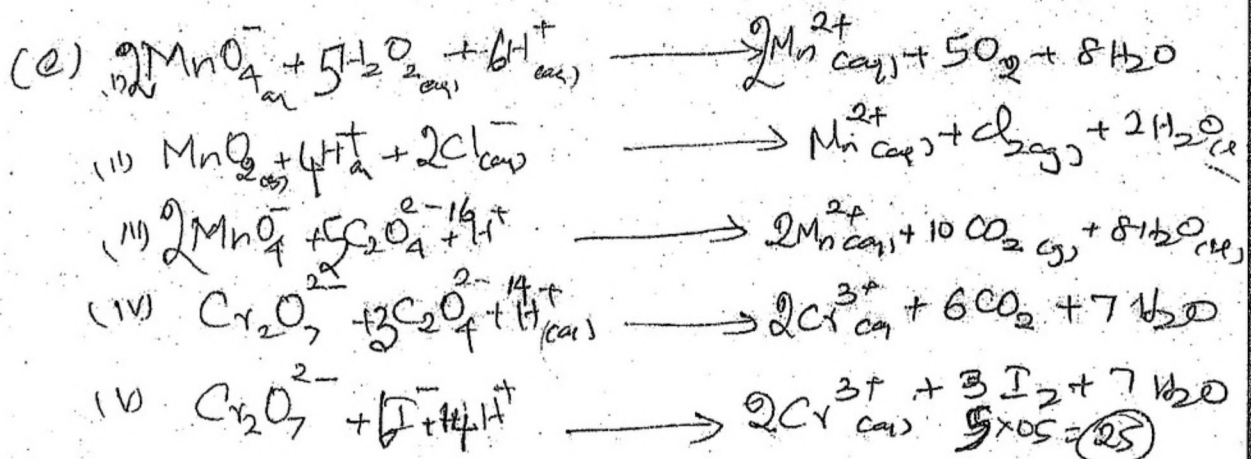 (e) (i) 2MnO₄⁻ aq + 5H₂O₂ (aq) + 6H⁺ (aq) ⟶ 2Mn²⁺ (aq) + 5O₂ + 8H₂O
(ii) MnO₂ (s) + 4H⁺ a + 2Cl⁻ (aq) ⟶ Mn²⁺ (aq) + Cl₂ (g) + 2H₂O (l
(iii) 2MnO₄⁻ + 5C₂O₄²⁻ + 16H⁺ ⟶ 2Mn²⁺ (aq) + 10CO₂ (g) + 8H₂O (l)
(iv) Cr₂O₇²⁻ + 3C₂O₄²⁻ + 14H⁺ (aq) ⟶ 2Cr³⁺ aq + 6CO₂ + 7H₂O
(v Cr₂O₇²⁻ + 6I⁻ + 14H⁺ ⟶ 2Cr³⁺ (aq) + 3I₂ + 7H₂O
5×05 = 25